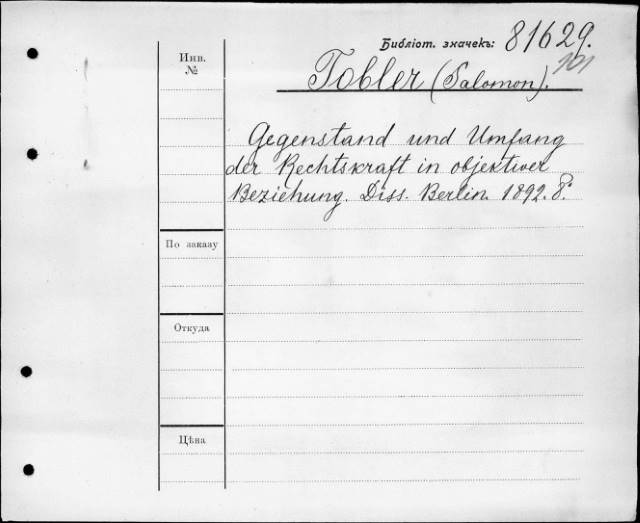 Библіот. значекъ: 81629.
101
Инв.
№
Tobler (Salomon).
Gegenstand und Umfang
der Rechtskraft in objektiver
Beziehung. Diss. Berlin. 1892. 8º.
По заказу
Откуда
Цѣна